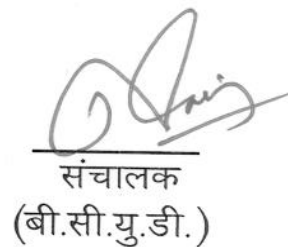 संचालक
(बी.सी.यु.डी.)